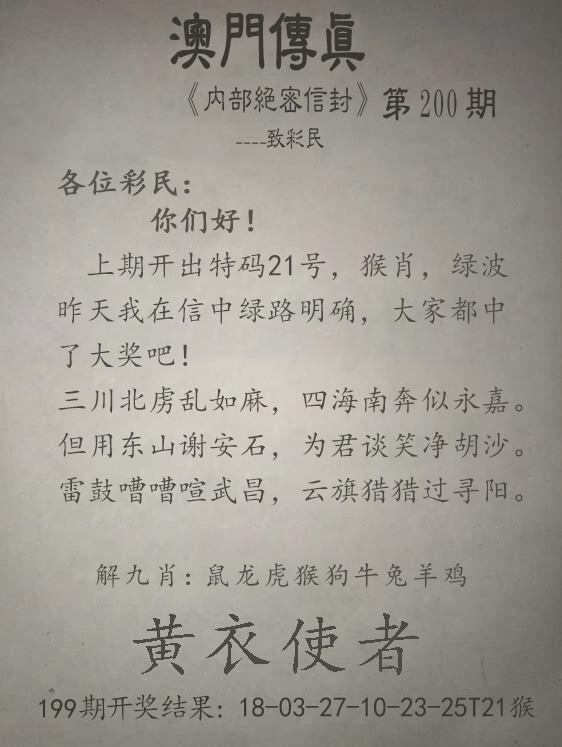 澳門傳眞
《内部絕密信封》第200期
----致彩民
各位彩民：
你们好！
上期开出特码21号，猴肖，绿波
昨天我在信中绿路明确，大家都中
了大奖吧！
三川北虏乱如麻，四海南奔似永嘉。
但用东山谢安石，为君谈笑净胡沙。
雷鼓嘈嘈喧武昌，云旗猎猎过寻阳。
解九肖：鼠龙虎猴狗牛兔羊鸡
黄衣使者
199期开奖结果：18-03-27-10-23-25T21猴